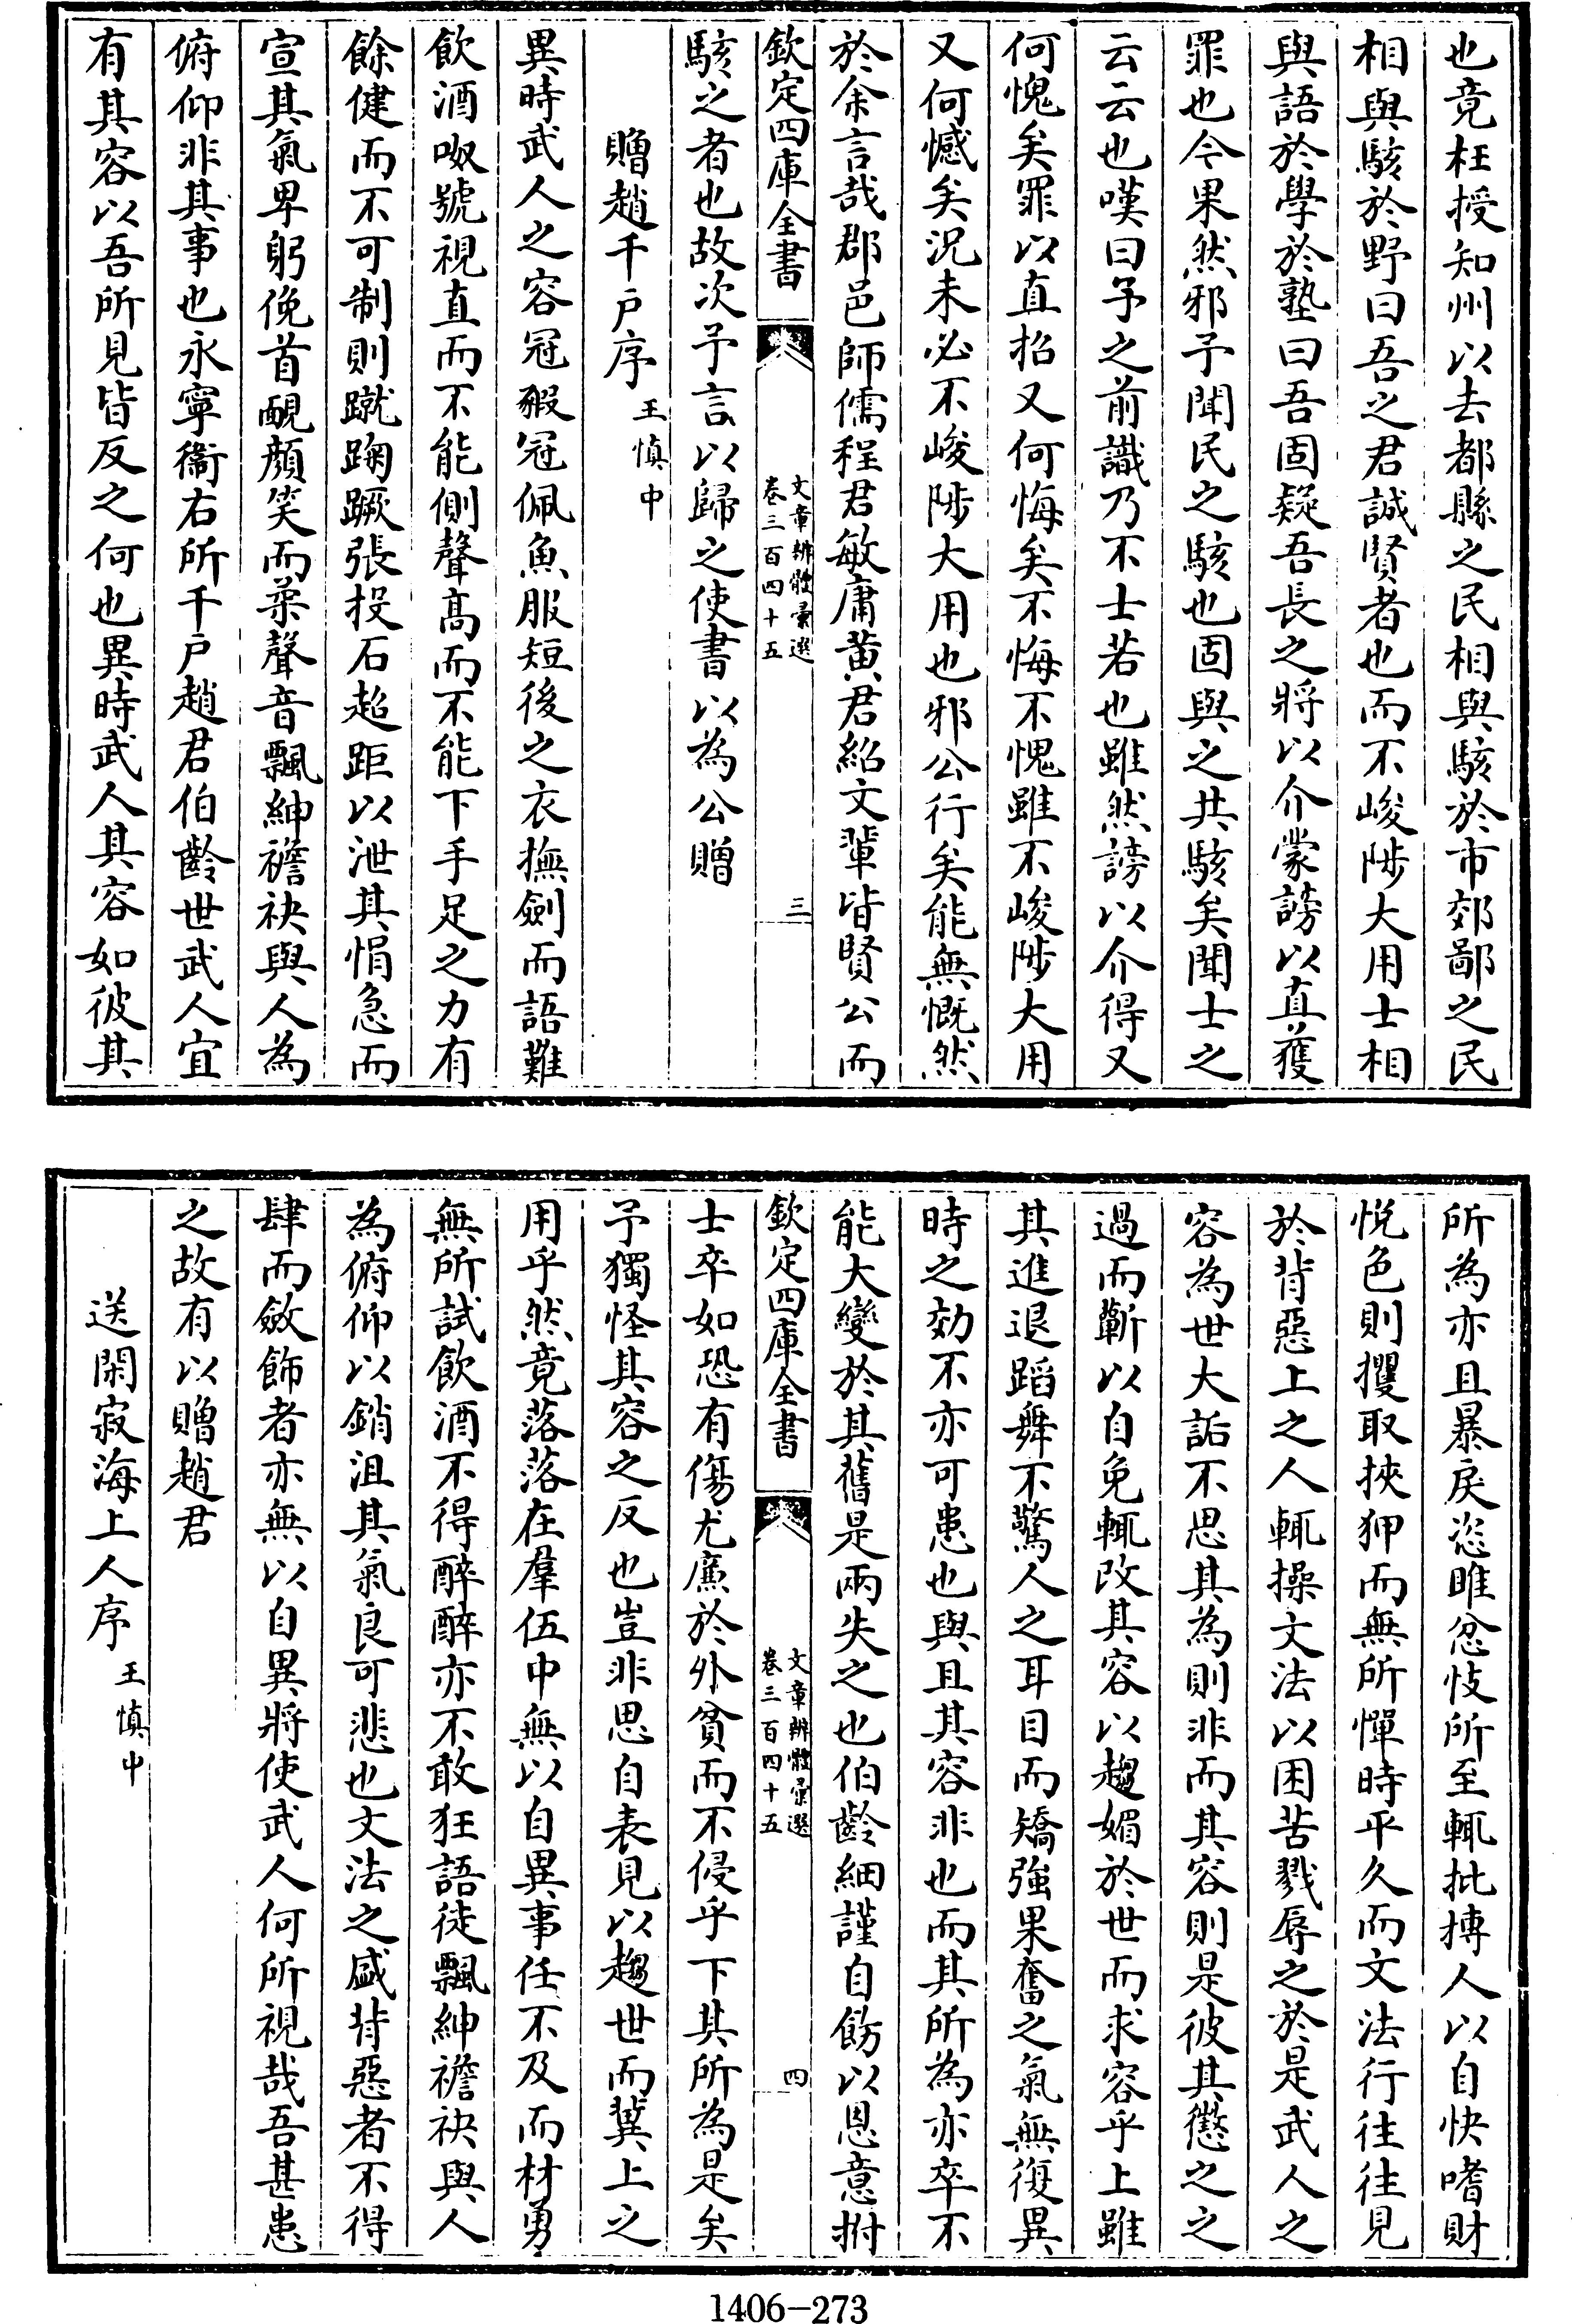 也竟枉授知州以去都縣之民相與駭於市郊鄙之民
相與駭於野曰吾之君誠賢者也而不峻陟大用士相
與語於學於塾曰吾固疑吾長之將以介蒙謗以直獲
罪也今果然邪予聞民之駭也固與之共駭矣聞士之
云云也嘆曰予之前識乃不士若也雖然謗以介得又
何愧矣罪以直招又何悔矣不悔不愧雖不峻陟大用
又何憾矣況未必不峻陟大用也邪公行矣能無慨然
於余言哉郡邑師儒程君敏庸黄君紹文輩皆賢公而
欽定四庫全書
文章辨體彙選
卷三百四十五
三
駭之者也故次予言以歸之使書以為公贈
贈趙千戶序
王慎中
異時武人之容冠豭冠佩魚服短後之衣撫劍而語難
飲酒呶號視直而不能側聲髙而不能下手足之力有
餘健而不可制則蹴踘蹶張投石超距以泄其悁急而
宣其氣卑躬俛首靦顔笑而柔聲音飄紳襜袂與人為
俯仰非其事也永寧衞右所千戶趙君伯齡世武人宜
有其容以吾所見皆反之何也異時武人其容如彼其
所為亦且暴戾恣睢忿忮所至輒批搏人以自快嗜財
悅色則攫取挾狎而無所憚時平久而文法行往往見
於背惡上之人輒操文法以困苦戮辱之於是武人之
容為世大詬不思其為則非而其容則是彼其懲之之
過而蘄以自免輒改其容以趨媚於世而求容乎上雖
其進退蹈舞不驚人之耳目而矯強果奮之氣無復異
時之効不亦可患也與且其容非也而其所為亦卒不
能大變於其舊是兩失之也伯齡細謹自飭以恩意拊
欽定四庫全書
文章辨體彙選
卷三百四十五
四
士卒如恐有傷尤㢘於外貧而不侵乎下其所為是矣
予獨怪其容之反也豈非思自表見以趨世而冀上之
用乎然竟落落在羣伍中無以自異事任不及而材勇
無所試飲酒不得醉醉亦不敢狂語徒飄紳襜袂與人
為俯仰以銷沮其氣良可悲也文法之盛背惡者不得
肆而斂飾者亦無以自異將使武人何所視哉吾甚患
之故有以贈趙君
送閑寂海上人序
王慎中
1406-273